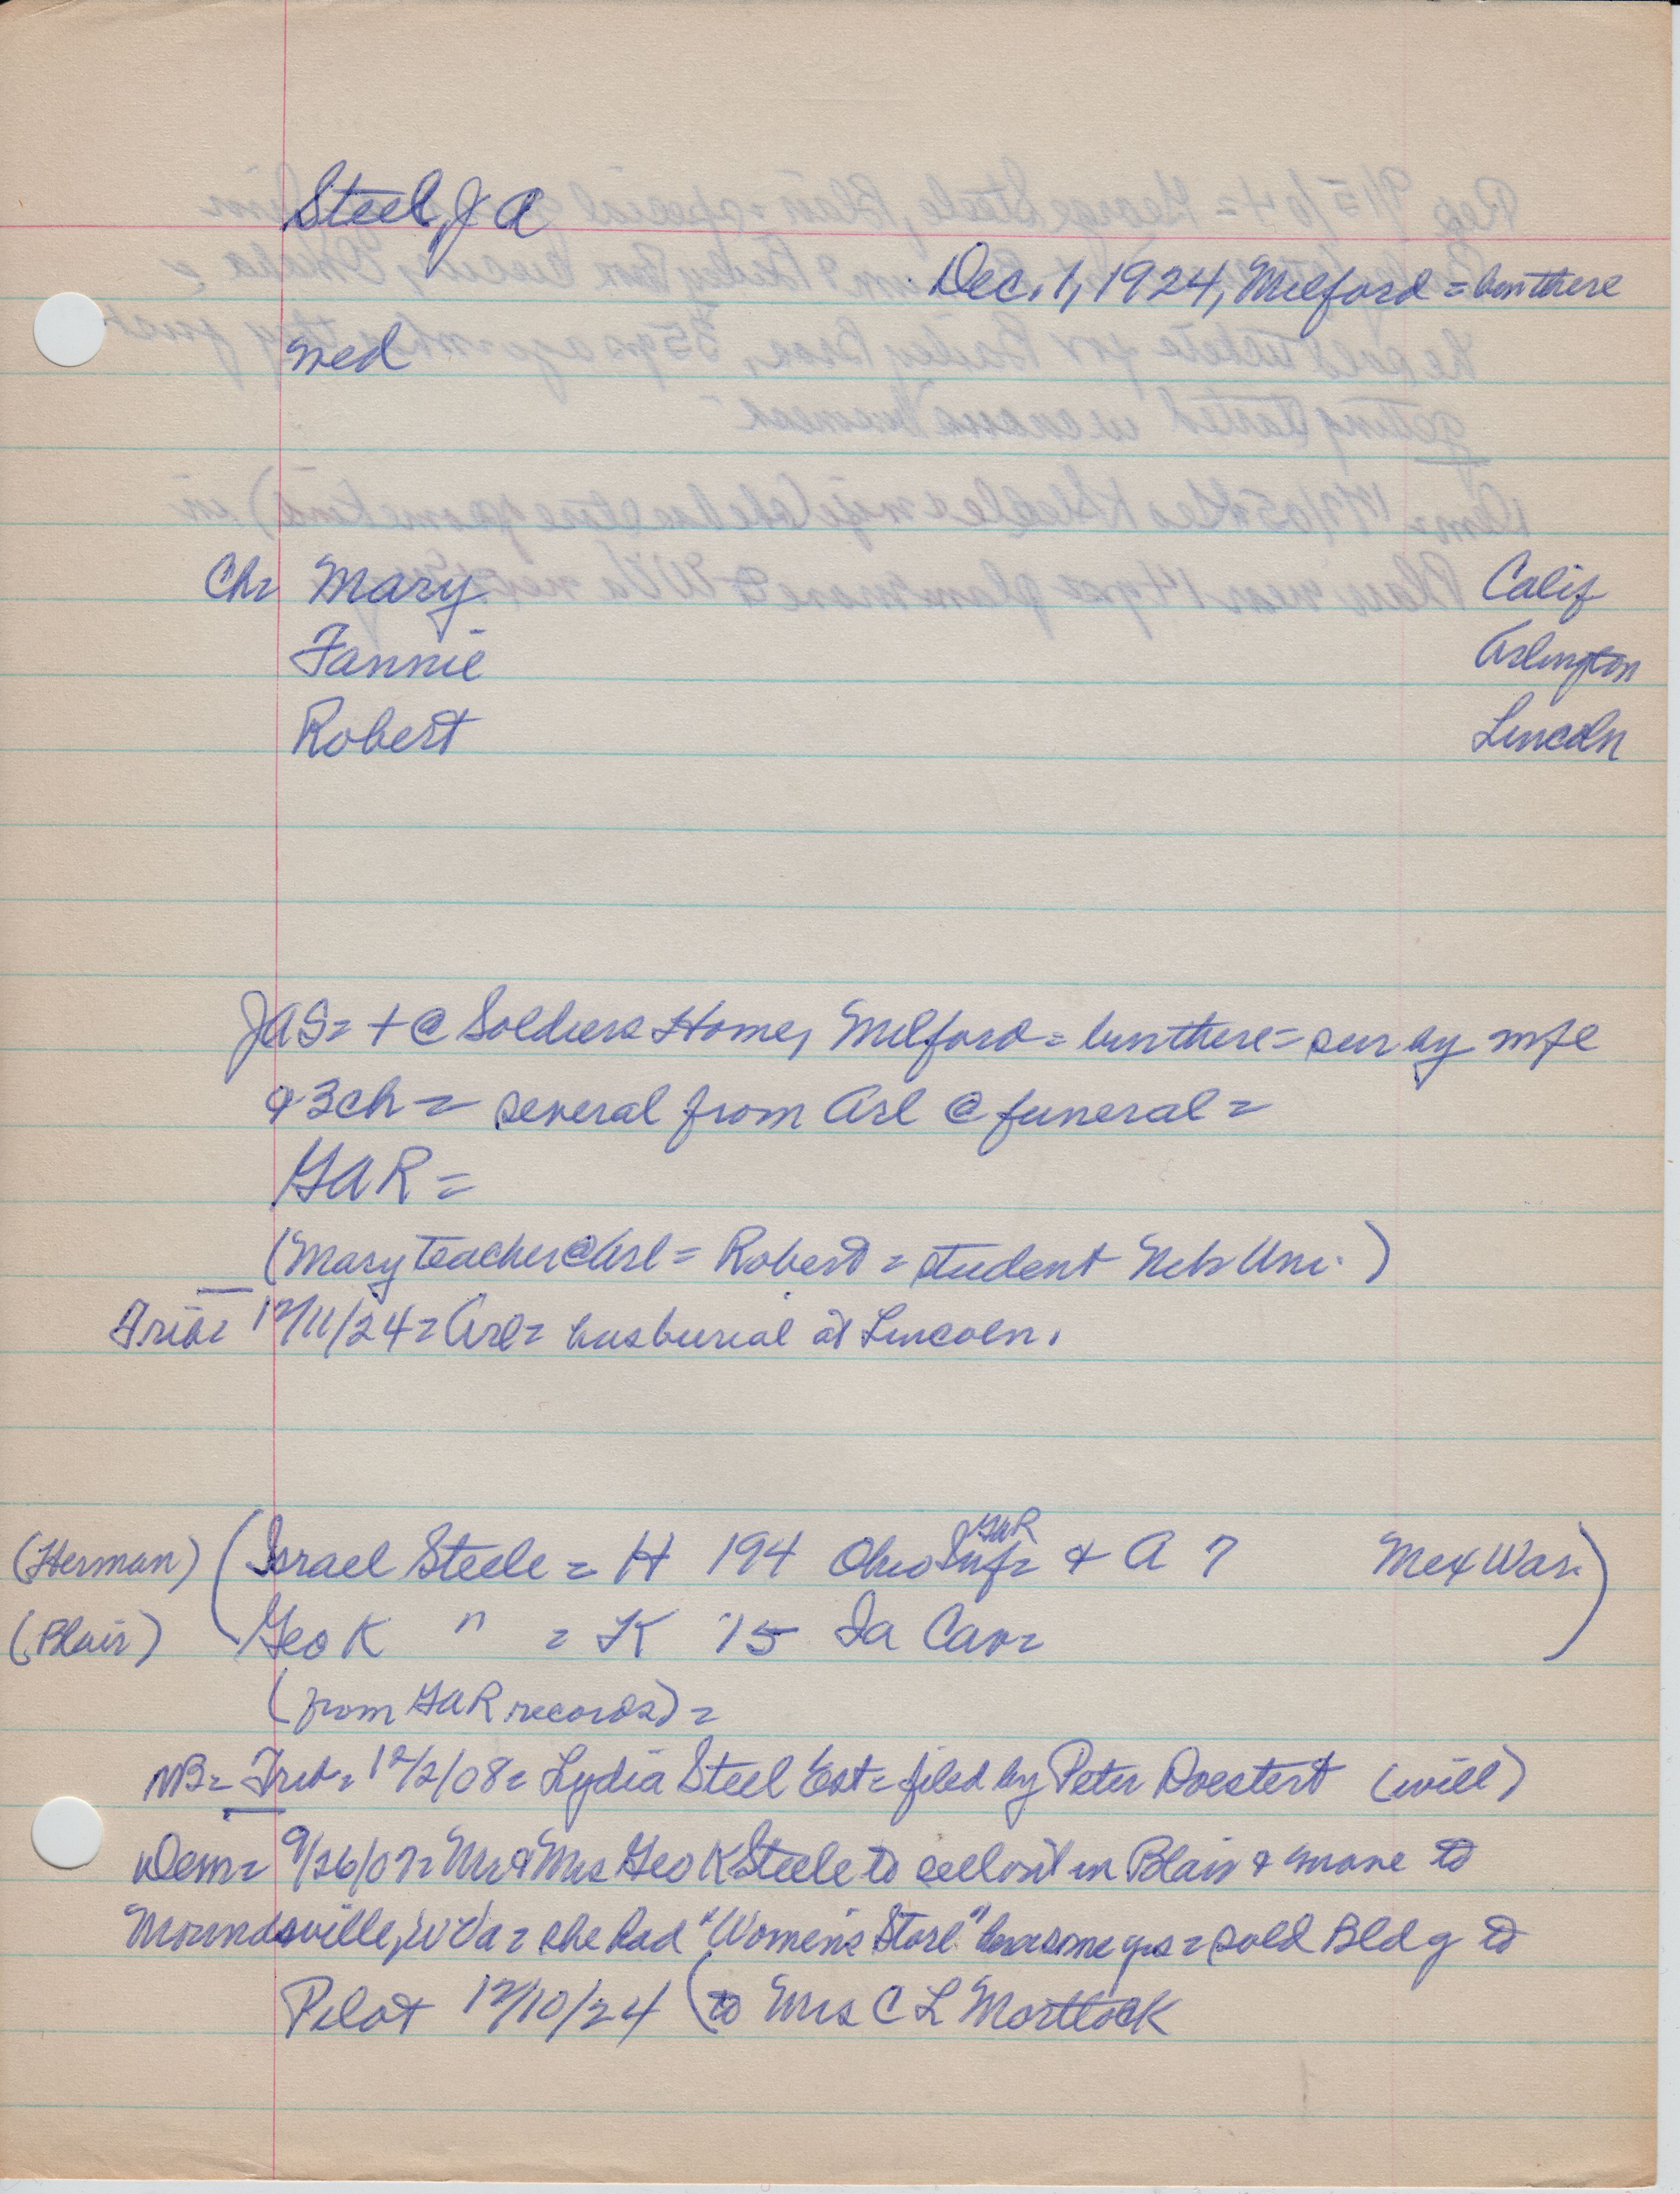 Steel, J A
Dec. 1, 1924, Milford = bur there
med
Ch= Mary Calif
Fannie Arlington
Robert Lincoln
JAS= + @ Soldiers Home, Milford = bur there = sur by wife
& 3 ch = several from Arl @ funeral =
GAR =
(Mary teacher @ Arl = Robert = student Neb Uni.)
Trib= 12/11/24 = Arl = has burial at Lincoln.
(Herman) (Israel Steele = H 194 Ohio Inf= GAR & A 7 Mex War.)
(Blair) Geo K " = K 15 Ia Cav=
(from GAR records) =
NB= Trib= 12/2/08 = Lydia Steel Est = filed by Peter (will)
Dem= 9/26/07= Mr & Mrs Geo K Steele to sell out in Blair & move to
Moundsville, W Va = she had "Women's Store" here some yrs = sold Bldg to
Pilot 12/10/24 (to Mrs C L Mortlock